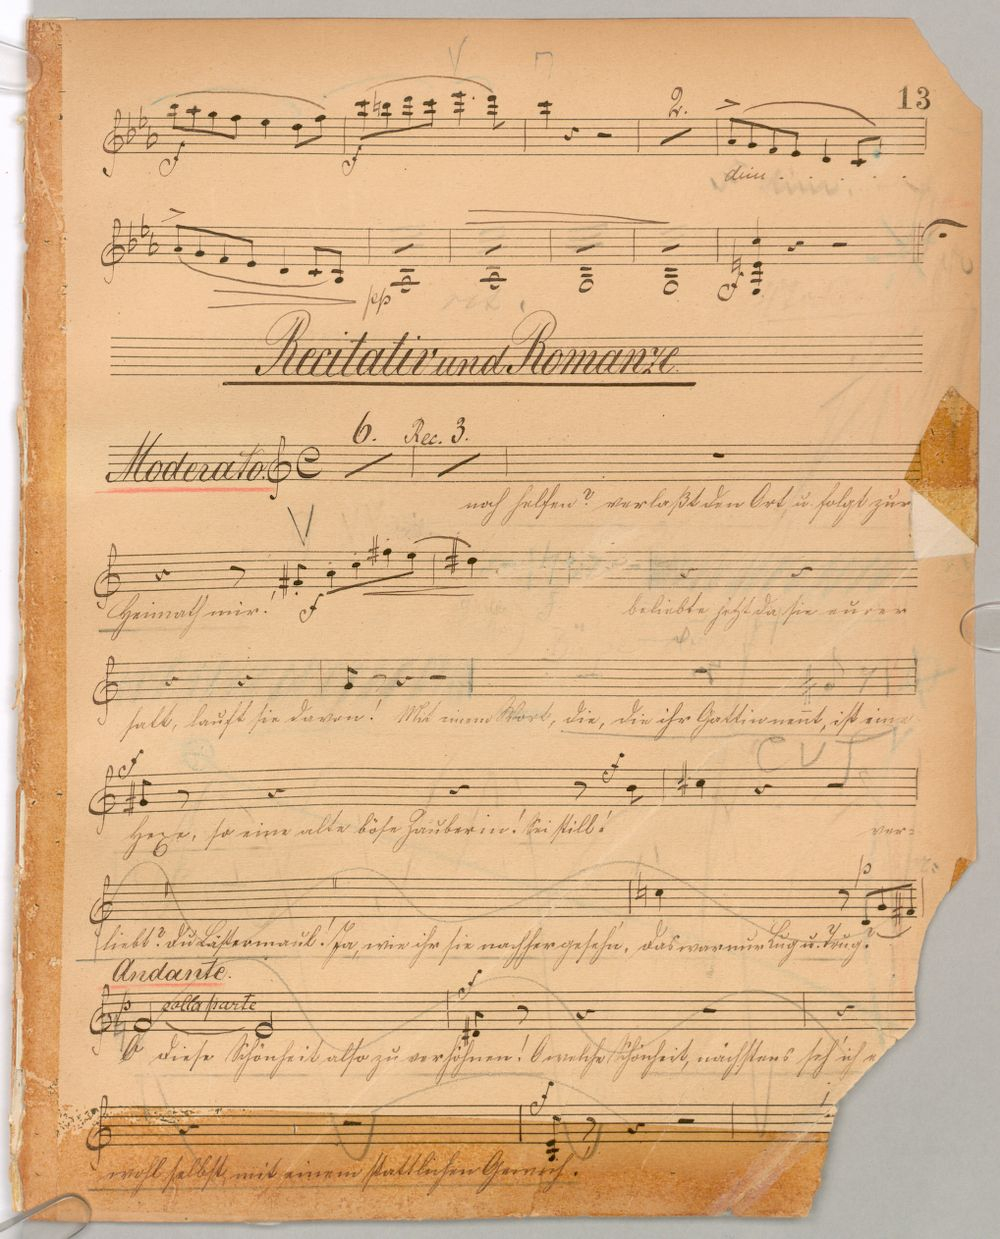 13
2.
dim
pp
Recitativ und Romanze.
6. Rec. 3.
Moderato.
noch helfen? verlaßt den Ort u. folgt zur
Heimath mir!
beliebte jetzt da sie eurer
satt, lauft sie davon! Mit einem Wort, die, die ihr Gattin nennt, ist eine
CUT
Hexe, so eine alte böse Zauberin! Sei still!
ver-
p
liebt? Du Lästermaul! Ja, wie ihr sie nachher gesehn, das war nur Lug u. Trug.
Andante.
p colla parte
O diese Schönheit also zu verhöhnen! O welche Schönheit, nächstens seh ich e
wohl selbst, mit einem stattlichen Geweih.